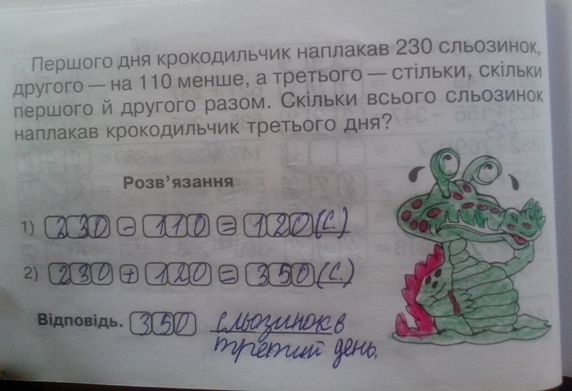 Першого дня крокодильчик наплакав 230 сльозинок,
другого — на 110 менше, а третього — стільки, скільки
першого й другого разом. Скільки всього сльозинок
наплакав крокодильчик третього дня?
Розв'язання
1) 230 - 110 = 120 (с.)
2) 230 + 120 = 350 (с.)
Відповідь. 350 сльозинок в
третий день.